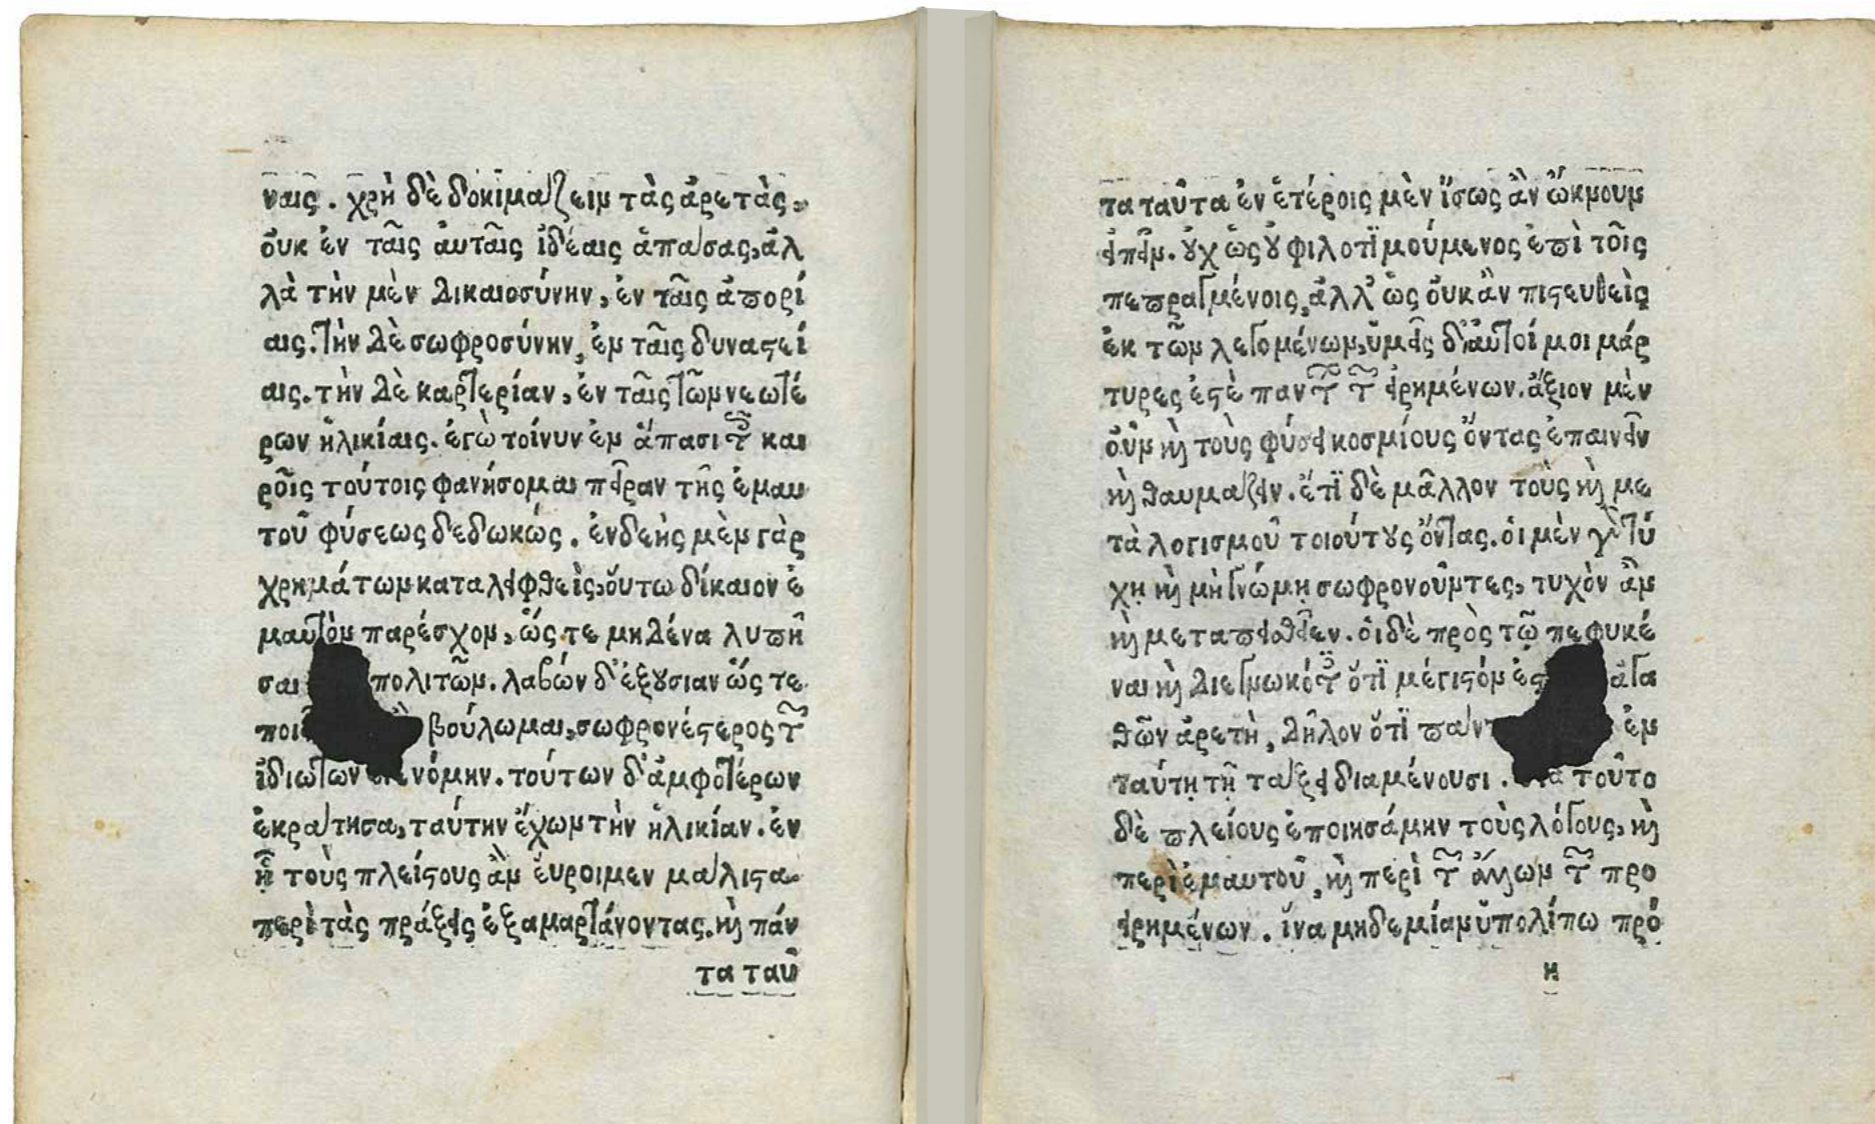 ναις. χρὴ δὲ δοκιμάζειν τὰς ἀρετὰς,
ὀυκ ἐν ταῖς ἀυταῖς ἰδέαις ἁπάσας, ἀλ
λὰ τὴν μὲν δικαιοσύνην, ἐν ταῖς ἀπορί
αις. τὴν δὲ σωφροσύνην, ἐν ταῖς δυναστεί
αις. τὴν δὲ καρτερίαν, ἐν ταῖς τῶν νεωτέ
ρων ἡλικίαις. ἐγὼ τοίνυν ἐν ἅπασι τοῖς και
ροῖς τούτοις φανήσομαι πεῖραν τῆς ἐμαυ
τοῦ φύσεως δεδωκώς. ἐνδεὴς μὲν γὰρ
χρημάτων καταλειφθεὶς, οὕτω δίκαιον ἐ
μαυτὸν παρέσχον, ὥς τε μηδένα λυπῆ
σαι πολιτῶν. λαβών δ' ἐξουσιαν ὥς τε
βούλωμαι, σωφρονέστερος τῶν
ἰδιωτῶν νόμην. τούτων δ' ἀμφοτέρων
ἐκράτησα, ταύτην ἔχων τὴν ἡλικίαν. ἐν
ᾗ τοὺς πλείστους ἂν ἕυροιμεν μάλιστα
περὶ τὰς πράξεις ἐξαμαρτάνοντας. καὶ πάν
τα ταῦ
τα ταῦτα ἐν ἑτέροις μὲν ἴσως ἂν ὤκνουν
εἰπεῖν. οὐχ ὡς οὐ φιλοτιμούμενος ἐπὶ τοῖς
πεπραγμένοις, ἀλλ' ὡς ὀυκ ἂν πιστευθεὶς
ἐκ τῶν λεγομένων, ὑμεῖς δ' ἀυτοί μοι μάρ
τυρες ἐστὲ παντων τῶν εἰρημένων. ἄξιον μὲν
οὖν καὶ τοὺς φύσει κοσμίους ὄντας ἐπαινεῖν
καὶ θαυμάζειν. ἔτι δὲ μᾶλλον τοὺς καὶ με
τὰ λογισμοῦ τοιούτους ὄντας. ὁι μὲν γὰρ τύ
χῃ καὶ μὴ γνώμῃ σωφρονοῦντες, τυχὸν ἂν
καὶ μεταπεισθεῖεν. ὁι δὲ πρὸς τῷ πεφυκέ
ναι καὶ διεγνωκότες ὅτι μέγιστόν ἐς ἀγα
θῶν ἀρετὴ, δῆλον ὅτι ἐν
ταύτῃ τῇ τάξει διαμένουσι. τοῦτο
δὲ πλείους ἐποιησάμην τοὺς λόγους, καὶ
περὶ ἐμαυτοῦ, καὶ περὶ τῶν ἄλλων τῶν προ
ειρημένων. ἵνα μηδεμίαν ὑπολίπω πρό
η